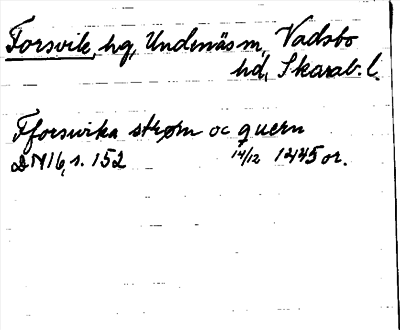 Forsvik, hg, Undenäs sn, Vadsbo
hd, Skarab. l.
Fforswika strøm oc quern
DN16, s. 152 14/12 1445 or.